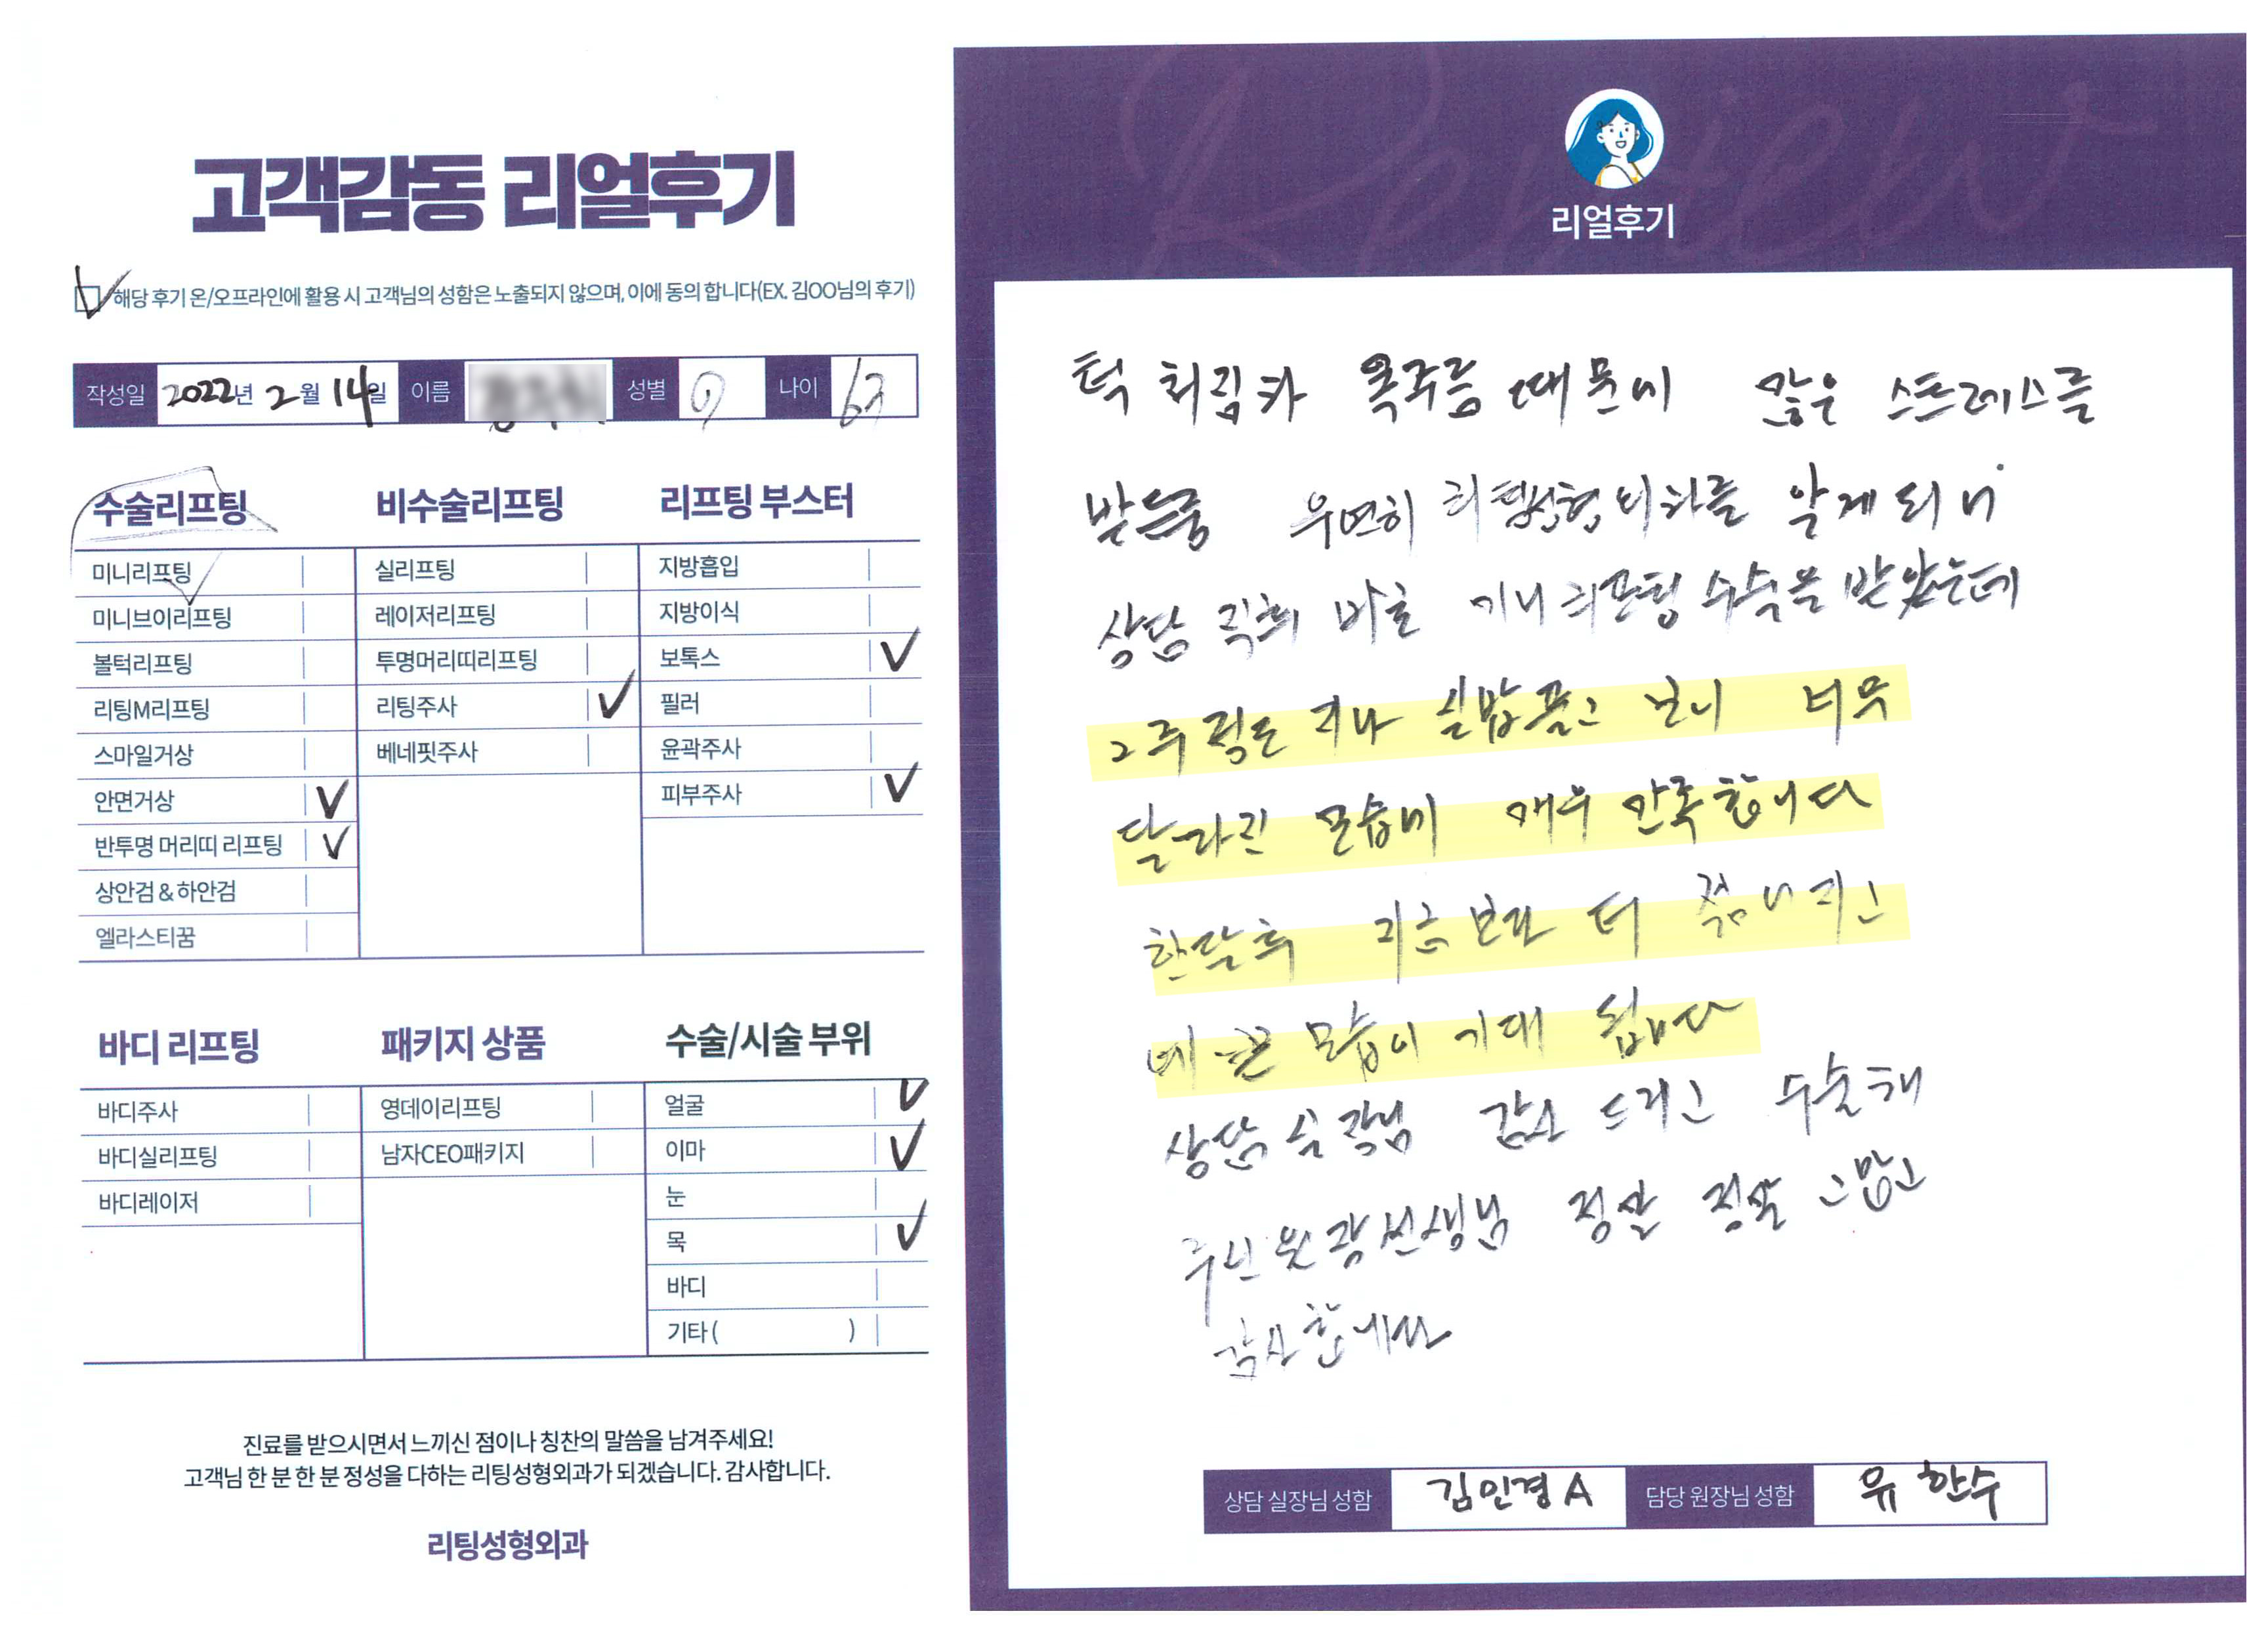 고객감동 리얼후기
해당 후기 온/오프라인에 활용 시 고객님의 성함은 노출되지 않으며, 이에 동의 합니다(EX. 김OO님의 후기)
작성일 2022년 2월 14일 이름 성별 나이
수술리프팅
미니리프팅
미니브이리프팅
볼턱리프팅
리팅M리프팅
스마일거상
안면거상
반투명 머리띠 리프팅
상안검 & 하안검
엘라스티꿈
비수술리프팅
실리프팅
레이저리프팅
투명머리띠리프팅
리팅주사
베네핏주사
리프팅 부스터
지방흡입
지방이식
보톡스
필러
윤곽주사
피부주사
바디 리프팅
바디주사
바디실리프팅
바디레이저
패키지 상품
영데이리프팅
남자CEO패키지
수술/시술 부위
얼굴
이마
눈
목
바디
기타 ( )
진료를 받으시면서 느끼신 점이나 칭찬의 말씀을 남겨주세요!
고객님 한 분 한 분 정성을 다하는 리팅성형외과가 되겠습니다. 감사합니다.
리팅성형외과
Review
리얼후기
턱 처짐과 목주름 때문에 많은 스트레스를
받는중 우연히 리팅성형외과를 알게되어
상담 직후 바로 미니리프팅 수술을 받았는데
2주정도 지나 실밥풀고 보니 너무
달라진 모습에 매우 만족합니다
한달후 지금보다 더 젊어지고
예쁜 모습이 기대 됩니다
상담실장님 감사 드리고 수술해
주신 원장선생님 정말 정말 고맙고
감사합니다
상담 실장님 성함 김인경A 담당 원장님 성함 유한수